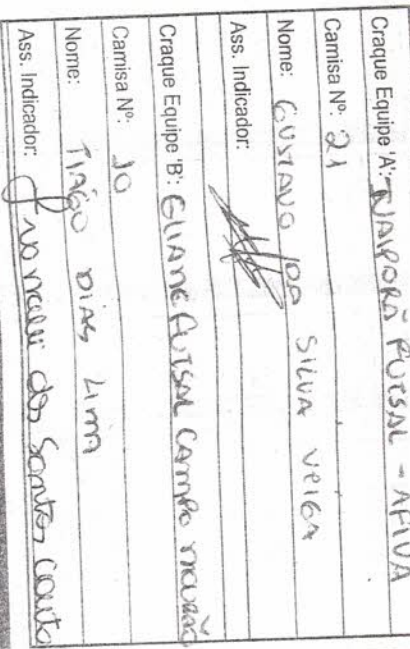 Craque Equipe 'A': IVAIPORÃ FUTSAL - AFIVA
Camisa Nº: 21
Nome: GUSTAVO DA SILVA VEIGA
Ass. Indicador:
Craque Equipe 'B': CAMPO MOURÃO
Camisa Nº: 10
Nome: TIAGO DIAS LIMA
Ass. Indicador: dos Santos Couto